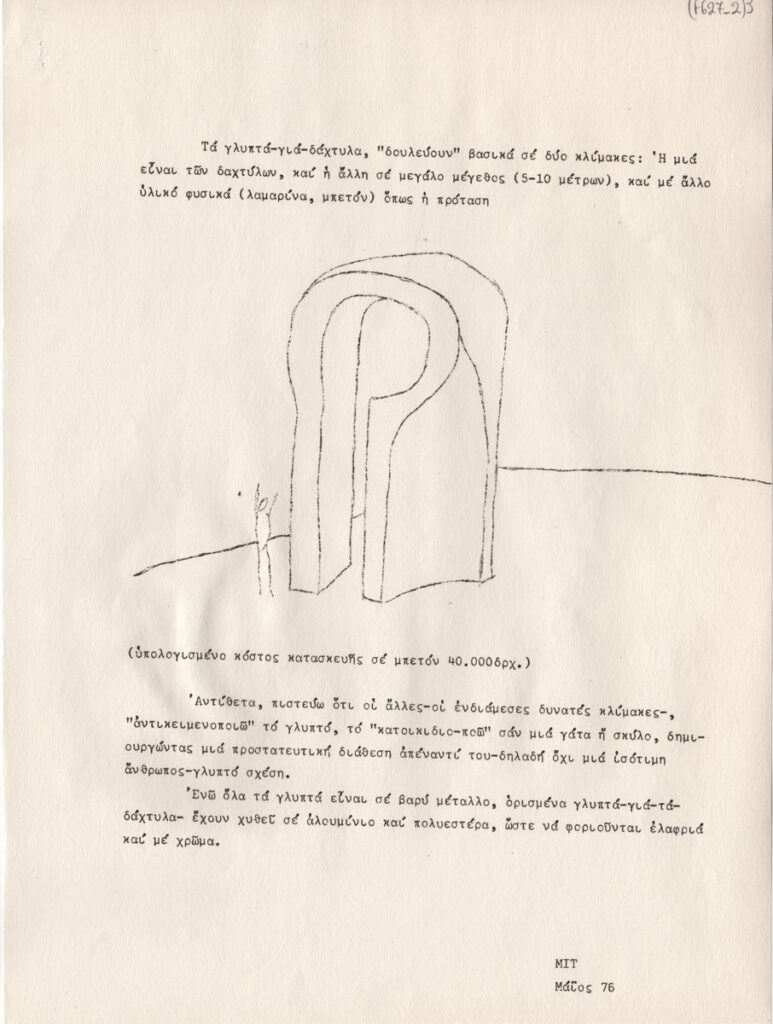 (f627_2)3
Τά γλυπτά-γιά-δάχτυλα, "δουλεύουν" βασικά σέ δύο κλίμακες: Ἡ μιά
εἶναι τῶν δαχτύλων, καί ἡ ἄλλη σέ μεγάλο μέγεθος (5-10 μέτρων), καί μέ ἄλλο
ὑλικό φυσικά (λαμαρίνα, μπετόν) ὅπως ἡ πρόταση
(ὑπολογισμένο κόστος κατασκευῆς σέ μπετόν 40.000δρχ.)
Ἀντίθετα, πιστεύω ὅτι οἱ ἄλλες-οἱ ἐνδιάμεσες δυνατές κλίμακες-,
"ἀντικειμενοποιῶ" τό γλυπτό, τό "κατοικιδιο-ποῶ" σάν μιά γάτα ἤ σκύλο, δημι-
ουργώντας μιά προστατευτική διάθεση ἀπέναντί του-δηλαδή ὄχι μιά ἰσότιμη
ἄνθρωπος-γλυπτό σχέση.
Ἐνῶ ὅλα τά γλυπτά εἶναι σέ βαρύ μέταλλο, ὁρισμένα γλυπτά-γιά-τά-
δάχτυλα- ἔχουν χυθεῖ σέ ἀλουμίνιο καί πολυεστέρα, ὥστε νά φοριοῦνται ἐλαφριά
καί μέ χρῶμα.
MIT
Μάϊος 76